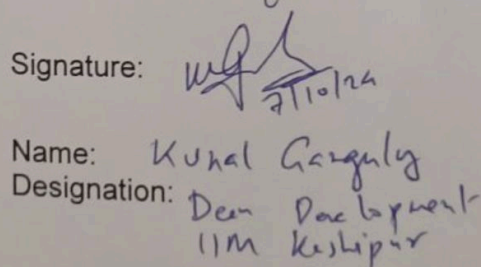 Signature:
7/10/24
Name: Kunal Ganguly
Designation: Dean Development
IIM Kashipur